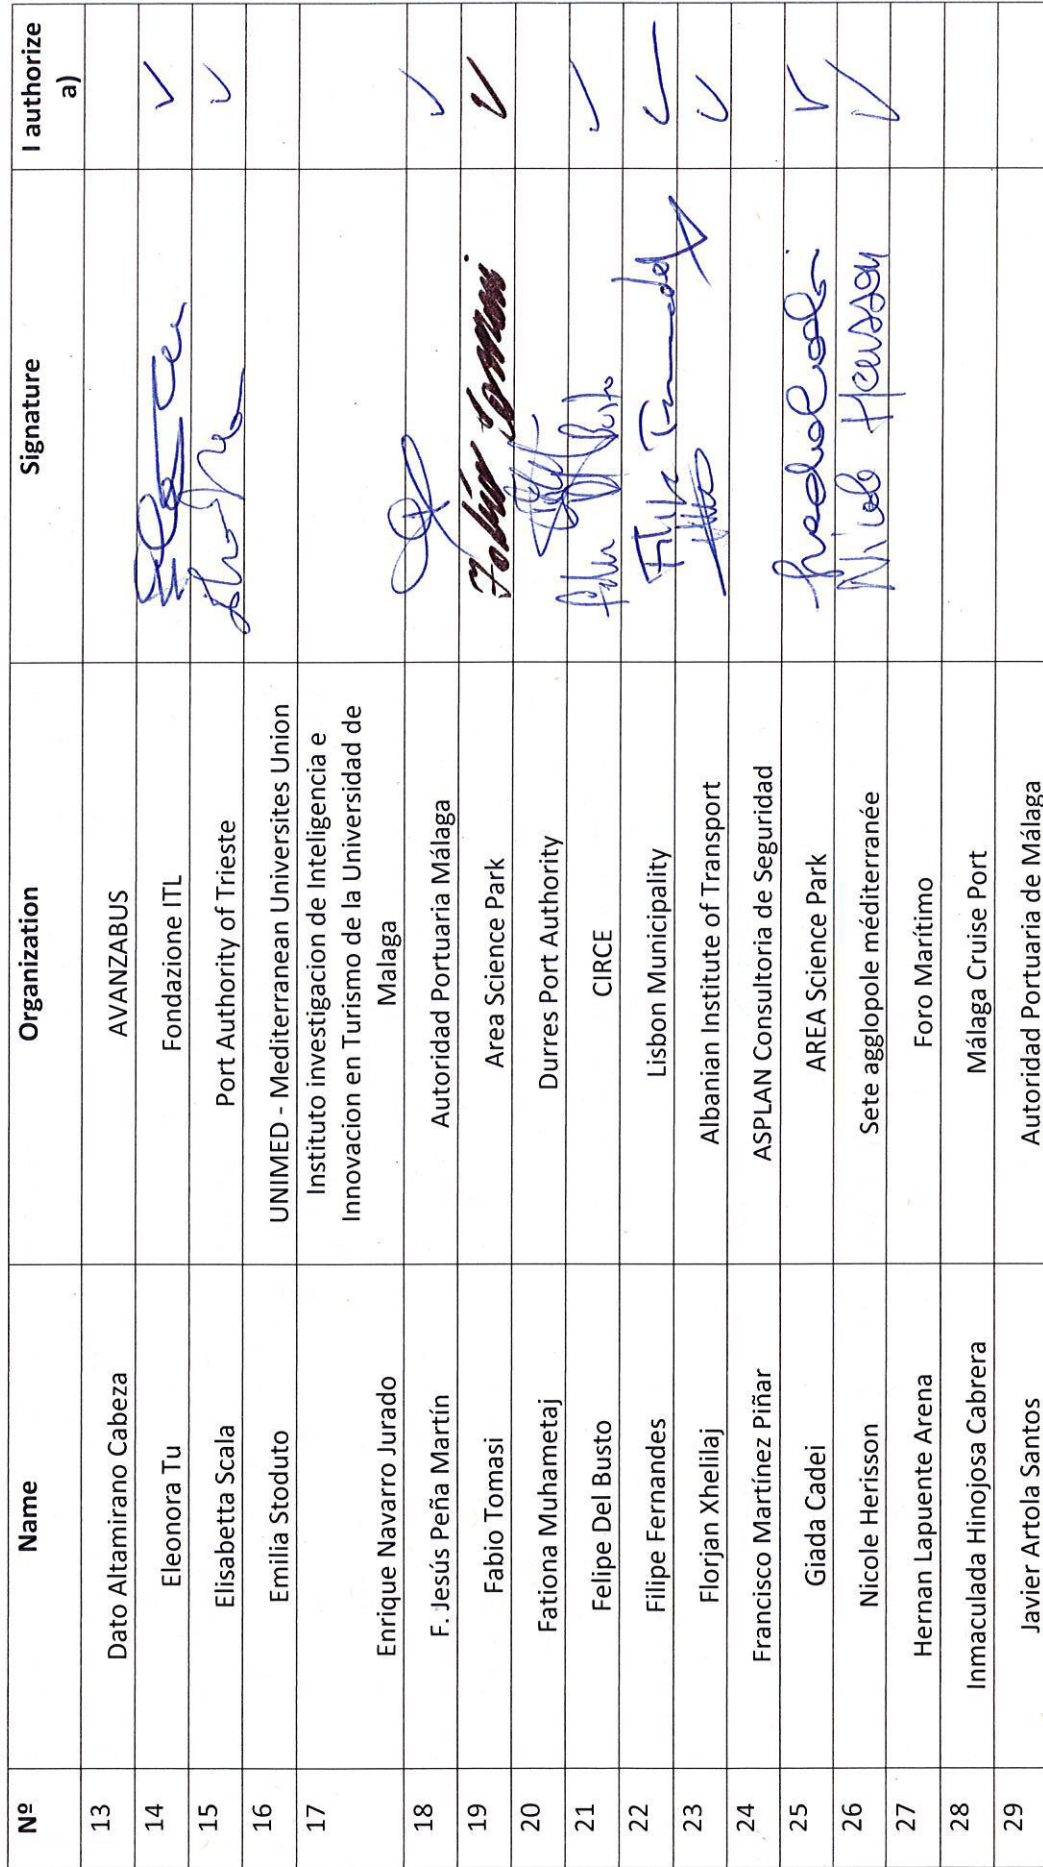 Nº Name Organization Signature I authorize a)
13 Dato Altamirano Cabeza AVANZABUS
14 Eleonora Tu Fondazione ITL
15 Elisabetta Scala Port Authority of Trieste
16 Emilia Stoduto UNIMED - Mediterranean Universites Union
17 Enrique Navarro Jurado Instituto investigacion de Inteligencia e
Innovacion en Turismo de la Universidad de
Malaga
18 F. Jesús Peña Martín Autoridad Portuaria Málaga
19 Fabio Tomasi Area Science Park
20 Fationa Muhametaj Durres Port Authority
21 Felipe Del Busto CIRCE
22 Filipe Fernandes Lisbon Municipality
23 Florjan Xhelilaj Albanian Institute of Transport
24 Francisco Martínez Piñar ASPLAN Consultoria de Seguridad
25 Giada Cadei AREA Science Park
26 Nicole Herisson Sete agglopole méditerranée Nicole Herisson
27 Hernan Lapuente Arena Foro Marítimo
28 Inmaculada Hinojosa Cabrera Málaga Cruise Port
29 Javier Artola Santos Autoridad Portuaria de Málaga